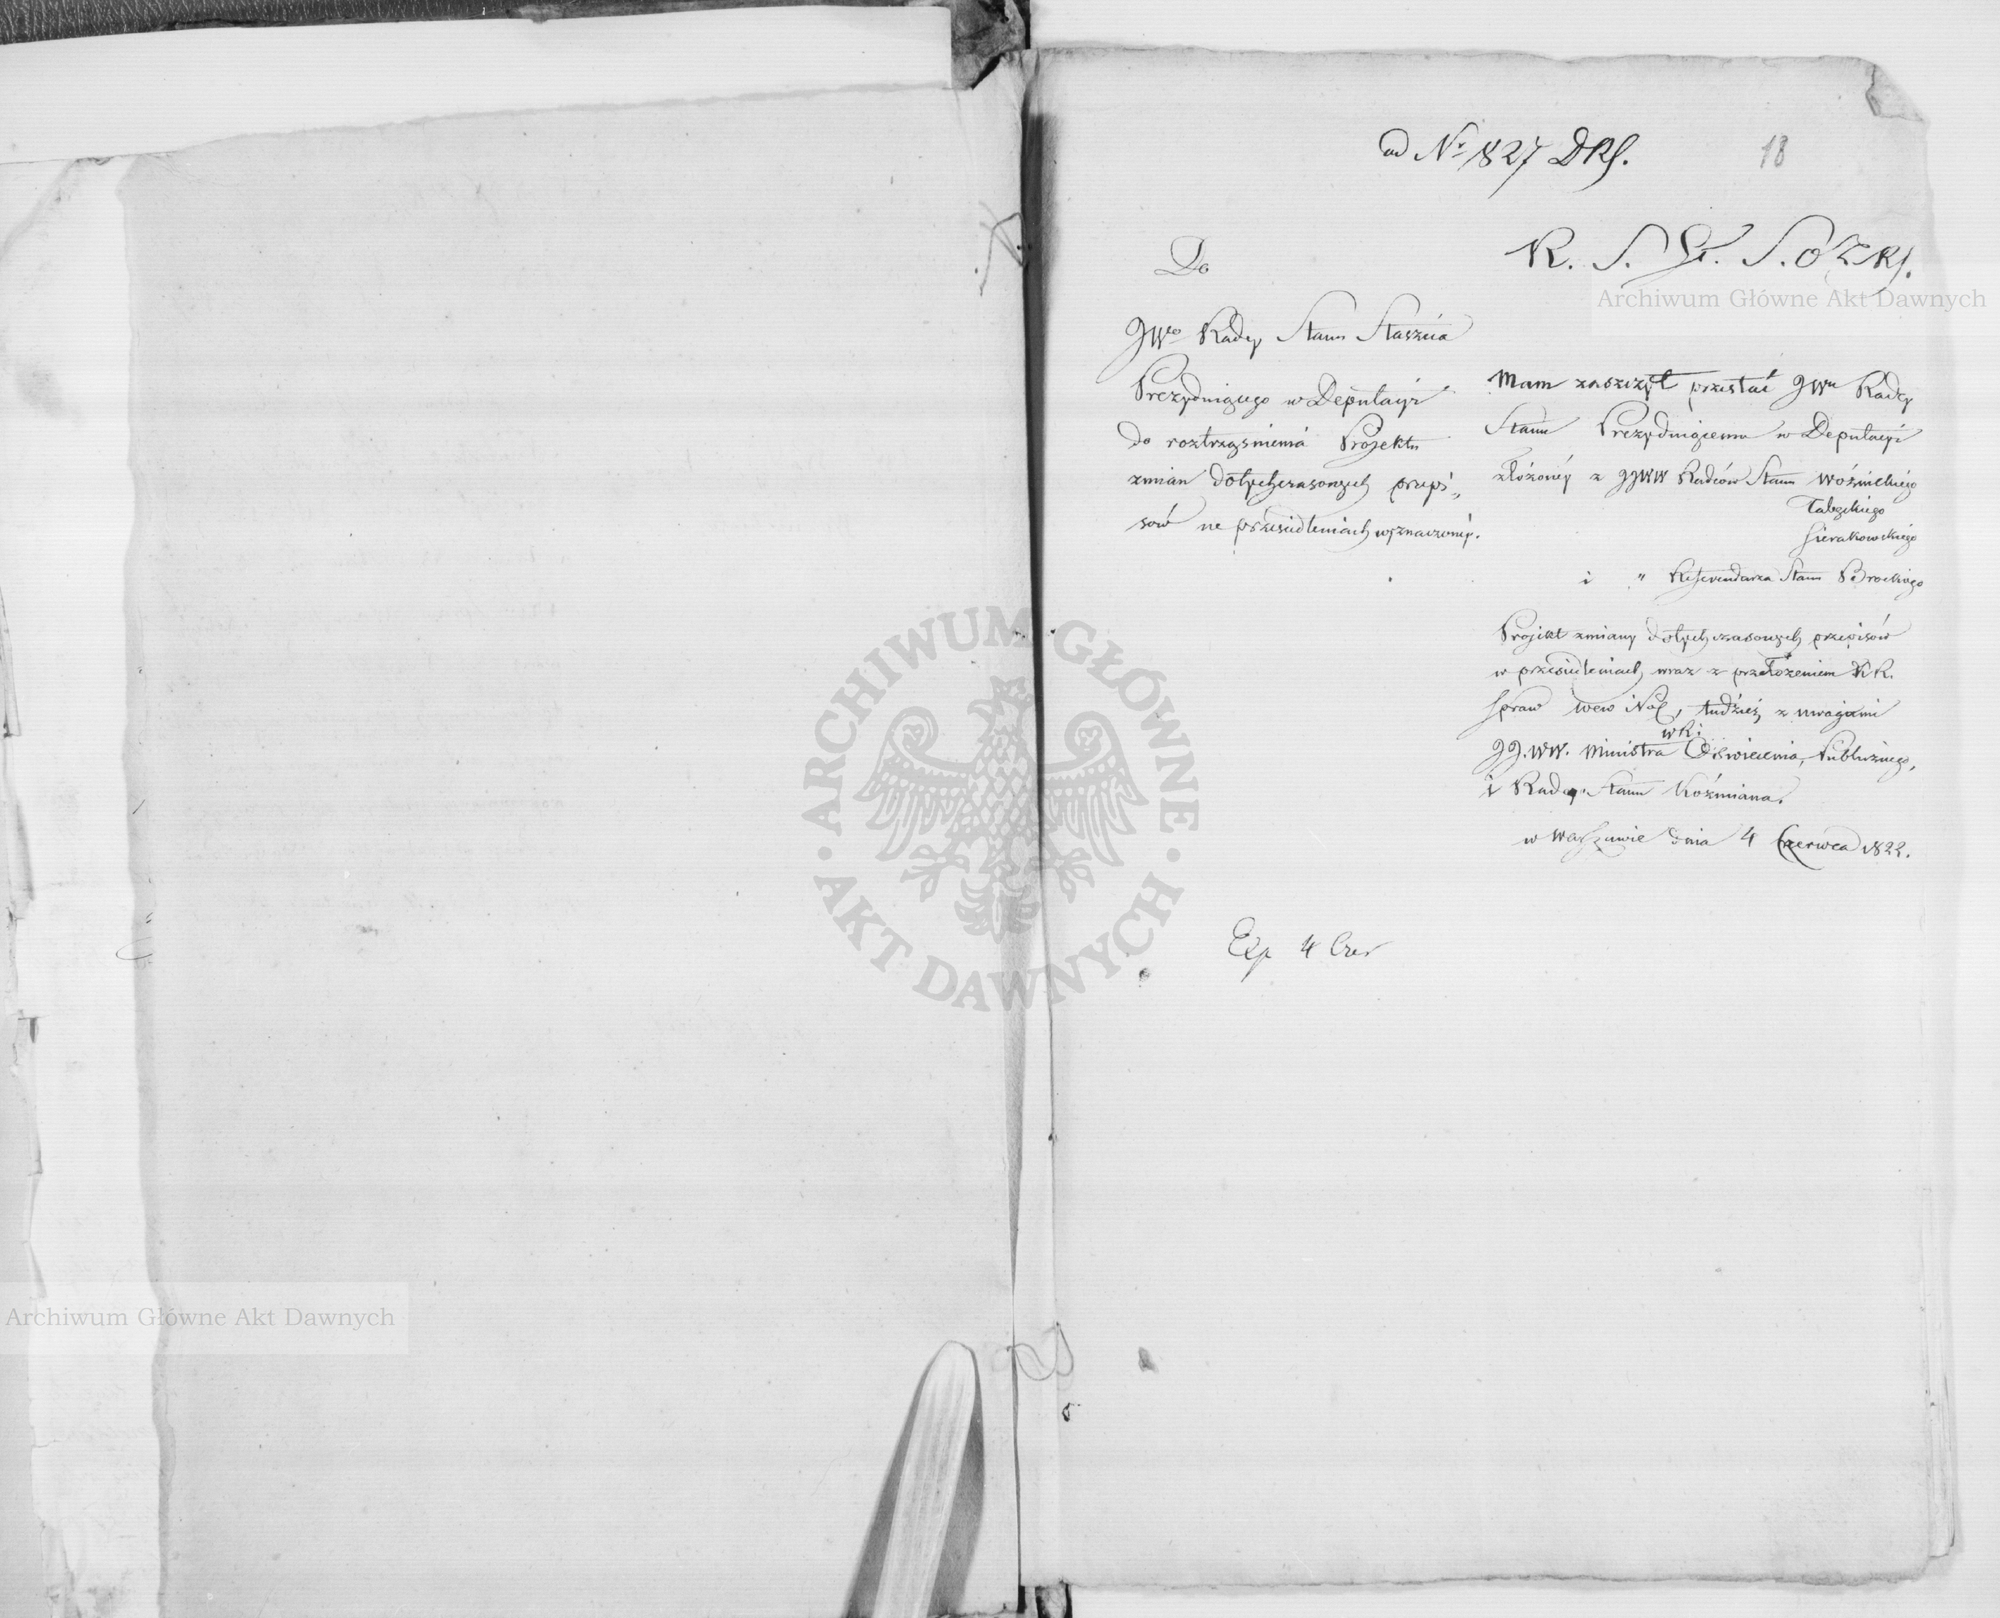 ad Nr 1827 DRS.
18
Do
JWgo Radcy Stanu Staszica
Prezydującego w Deputacyi
do roztrząśnienia Projektu
zmian dotychczasowych przepi„
sów na przesiedleniach wyznaczonéy.
R. S. St. S.
Mam zaszczyt przesłać JWu Radcy
Stanu Prezydującemu w Deputacyi
złożonéy z JJWW Radców Stanu Woźnickiego
Tabęckiego
Sierakowskiego
i " Referendarza Stanu Brockiego
Projekt zmiany dotychczasowych przepisów
w przesiedleniach wraz z przełożeniem KR.
Spraw Wew i Pol, tudzież z uwagami
JJ.WW. Ministra Oświecenia Publicznego,
i Radcy Stanu Koźmiana.
w Warszawie dnia 4 Czerwca 1822.
Exp 4 Czer
Archiwum Główne Akt Dawnych
ARCHIWUM GŁÓWNE AKT DAWNYCH
Archiwum Główne Akt Dawnych